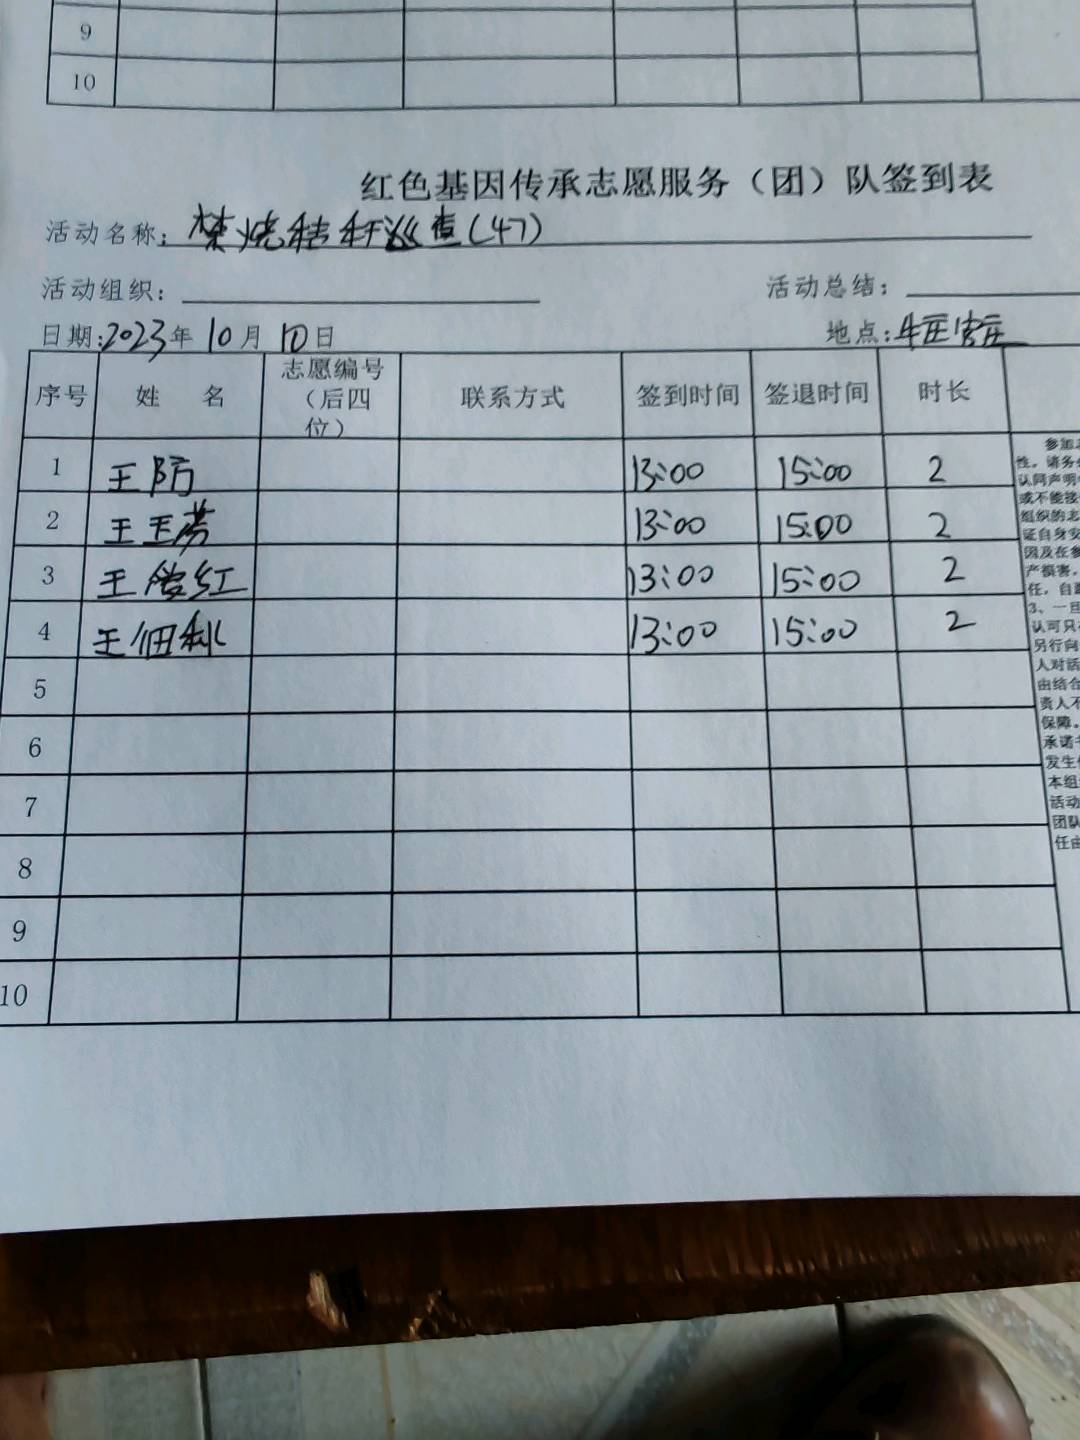 9
10
红色基因传承志愿服务（团）队签到表
活动名称：焚烧秸秆巡查(47)
活动组织：
活动总结：
日期:2023年10月10日
地点:牛庄官庄
序号 姓 名 志愿编号（后四位） 联系方式 签到时间 签退时间 时长
1 王防 13:00 15:00 2
2 王玉芳 13:00 15:00 2
3 王俊红 13:00 15:00 2
4 王佃利 13:00 15:00 2
5
6
7
8
9
10
参加志
性，请务必
认同声明中
或不能接
组织的志
证自身安
因及在参
产损害，
任，自
3、一旦
认可只
另行向
人对活
由结合
责人不
保障。
承诺书
发生
本组
活动
团队
任由